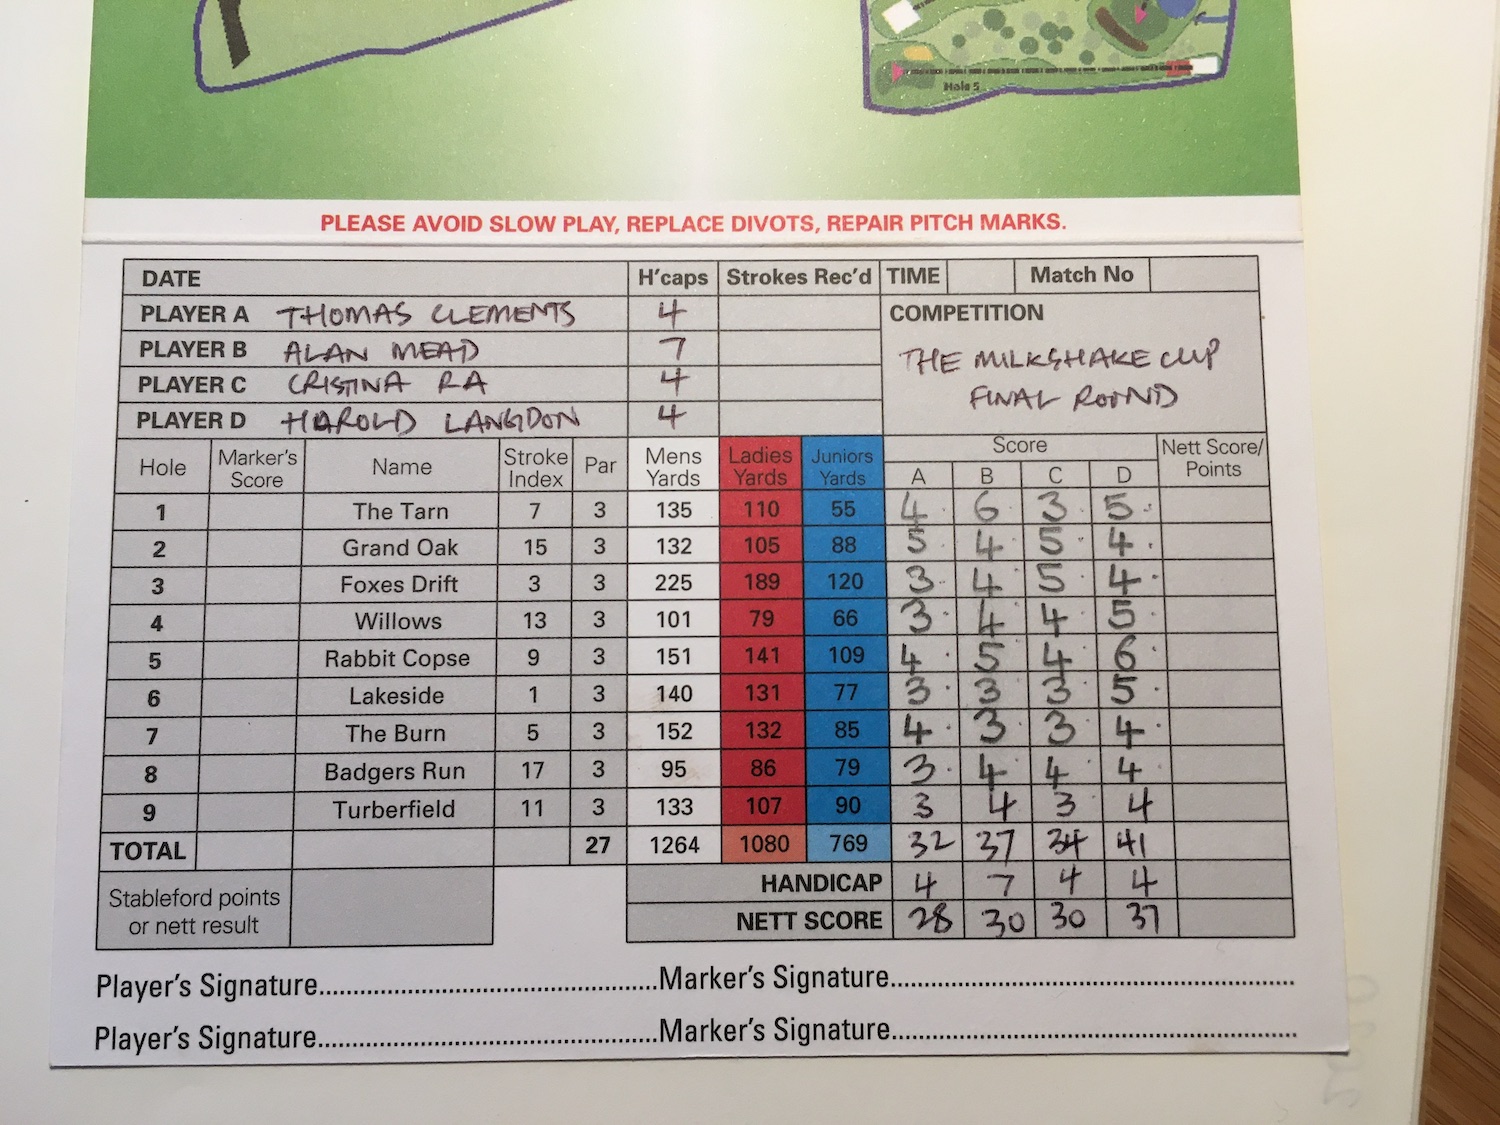 Hole 5
PLEASE AVOID SLOW PLAY, REPLACE DIVOTS, REPAIR PITCH MARKS.
DATE H'caps Strokes Rec'd TIME Match No
PLAYER A THOMAS CLEMENTS 4 COMPETITION
PLAYER B ALAN MEAD 7 THE MILKSHAKE CUP
PLAYER C CRISTINA RA 4 FINAL ROUND
PLAYER D HAROLD LANGDON 4
Hole Marker's Score Name Stroke Index Par Mens Yards Ladies Yards Juniors Yards Score A B C D Nett Score/ Points
1 The Tarn 7 3 135 110 55 4 6 3 5
2 Grand Oak 15 3 132 105 88 5 4 5 4
3 Foxes Drift 3 3 225 189 120 3 4 5 4
4 Willows 13 3 101 79 66 3 4 4 5
5 Rabbit Copse 9 3 151 141 109 4 5 4 6
6 Lakeside 1 3 140 131 77 3 3 3 5
7 The Burn 5 3 152 132 85 4 3 3 4
8 Badgers Run 17 3 95 86 79 3 4 4 4
9 Turberfield 11 3 133 107 90 3 4 3 4
TOTAL 27 1264 1080 769 32 37 34 41
Stableford points HANDICAP 4 7 4 4
or nett result NETT SCORE 28 30 30 37
Player's Signature..........Marker's Signature..........
Player's Signature..........Marker's Signature..........